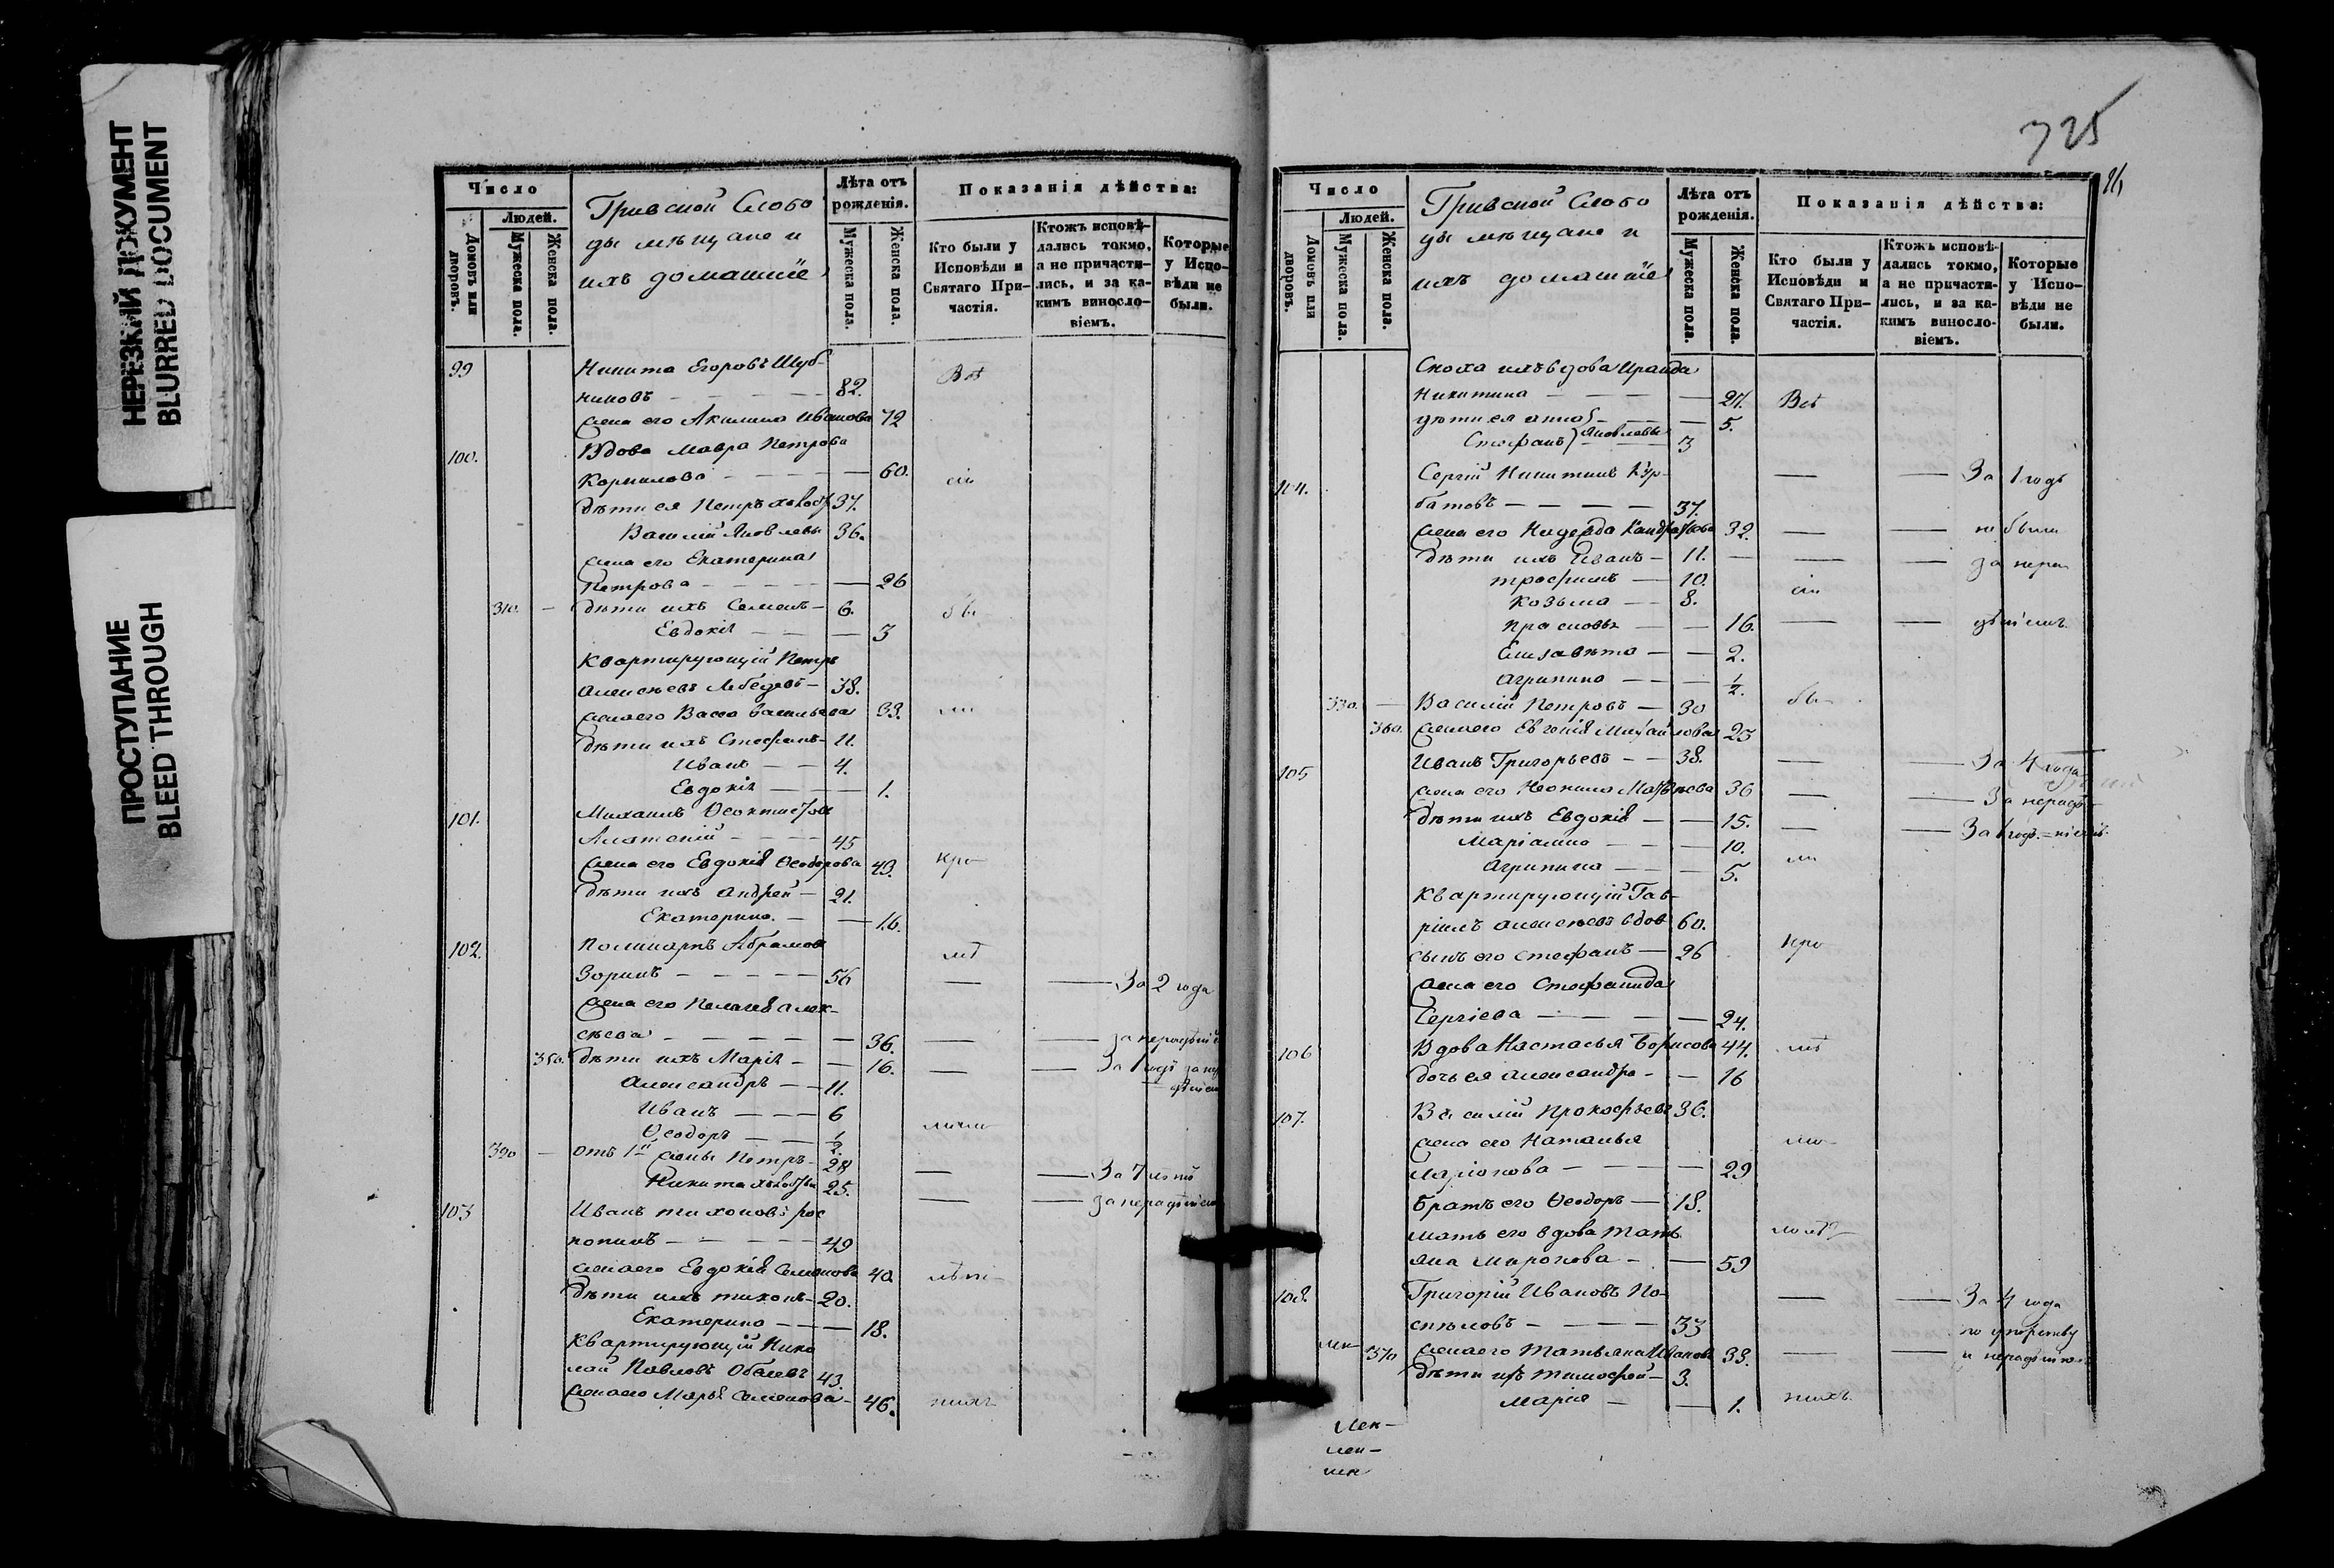 НЕРЕЗКИЙ ДОКУМЕНТ
BLURRED DOCUMENT
ПРОСТУПАНИЕ
BLEED THROUGH
Число
Людей.
Домовъ или дворовъ.
Мужеска пола.
Женска пола.
Гривской Слобо
ды мѣщане и
ихъ домашніе
Лѣта отъ рожденія.
Мужеска пола.
Женска пола.
Показанія дѣйства:
Кто были у Исповѣди и Святаго При-частія.
Ктожъ исповѣ-дались токмо, а не причасти-лись, и за ка-кимъ винословіемъ.
Которые у Испо-вѣди не были.
99 Никита Егоровъ Шуб-
никовъ 82. Всѣ
жена его Акилина Иванова 72
100. Вдова Мавра Петрова
Корнилова 60.
дѣти ея Петръ холост 37.
Василій Яковлевы 36.
жена его Екатерина
Петрова 26
310. дѣти ихъ Семенъ 6. бы
Евдокія 3
Квартирующій Петръ
Алексѣевъ Лебедевъ 38.
жена его Васса Васильева 33. ли
дѣти ихъ Стефанъ 11.
Иванъ 4.
Евдокія 1.
101. Михаилъ Ѳеоктистовъ
45
жена его Евдокія Ѳеодорова 49. кро
дѣти ихъ Андрей 21.
Екатерина 16.
102. Поликарпъ Абрамовъ мѣ
Зоринъ 56 За 2 года
жена его Пелагея Алек-
сѣева 36. за нерадѣніе
350. дѣти ихъ Марія 16. За 1 годъ за не
Александръ 11. радѣніем
Иванъ 6
Ѳеодоръ 1/2.
320 отъ 1й жены Петръ 28 За 7 лѣтъ
Никита холосты 25. за нерадѣніем
103 Иванъ Тихоновъ Рос
49
жена его Евдокія Семенова 40.
дѣти ихъ Тихонъ 20.
Екатерина 18.
Квартирующій Нико
лай Павловъ 43.
жена его Марья Семенова 46. нихъ
725
Число
Людей.
Домовъ или дворовъ.
Мужеска пола.
Женска пола.
Гривской Слобо
ды мѣщане и
ихъ домашніе
Лѣта отъ рожденія.
Мужеска пола.
Женска пола.
Показанія дѣйства:
Кто были у Исповѣди и Святаго При-частія.
Ктожъ исповѣ-дались токмо, а не причасти-лись, и за ка-кимъ винословіемъ.
Которые у Испо-вѣди не были.
Сноха ихъ вдова Ираида
Никитина 27. Всѣ
дѣти ея Анна 5.
Стефанъ } Яковлевы 3
104. Сергій Никитинъ Кур- За 1 годъ
батовъ 37.
жена его Надежда Кандратьева 32. не были
дѣти ихъ Иванъ 11. за нера
Трофимъ 10.
Козьма 8. сіи
Прасковья 16. дѣніемъ
Елизавета 2.
Агрипина 1/2.
330. Василій Петровъ 30 бы
360. жена его Евгенія Михайлова 25
105 Иванъ Григорьевъ 38. За 4 года
жена его Неонила Матвѣева 36 За нерадѣ
дѣти ихъ Евдокія 15. За 1 годъ ніемъ
Маріанна 10.
Агрипина 5. ли
Квартирующій Гав-
ріилъ Алексѣевъ вдов 60.
сынъ его Стефанъ 26 кро
жена его Стефанида
Сергіева 24.
106 Вдова Настасья Борисова 44. мѣ
дочь ея Александра 16
107. Василій Прокофьевъ 36.
жена его Наталья
Ларіонова 29
братъ его Ѳеодоръ 18.
мать его вдова Тать
яна Миронова 59
108. Григорій Ивановъ По- За 4 года
спѣловъ 33 по упорству
370 жена его Татьяна Иванова 33. и нерадѣнію
дѣти ихъ Тимофей 3.
Марія 1. нихъ.